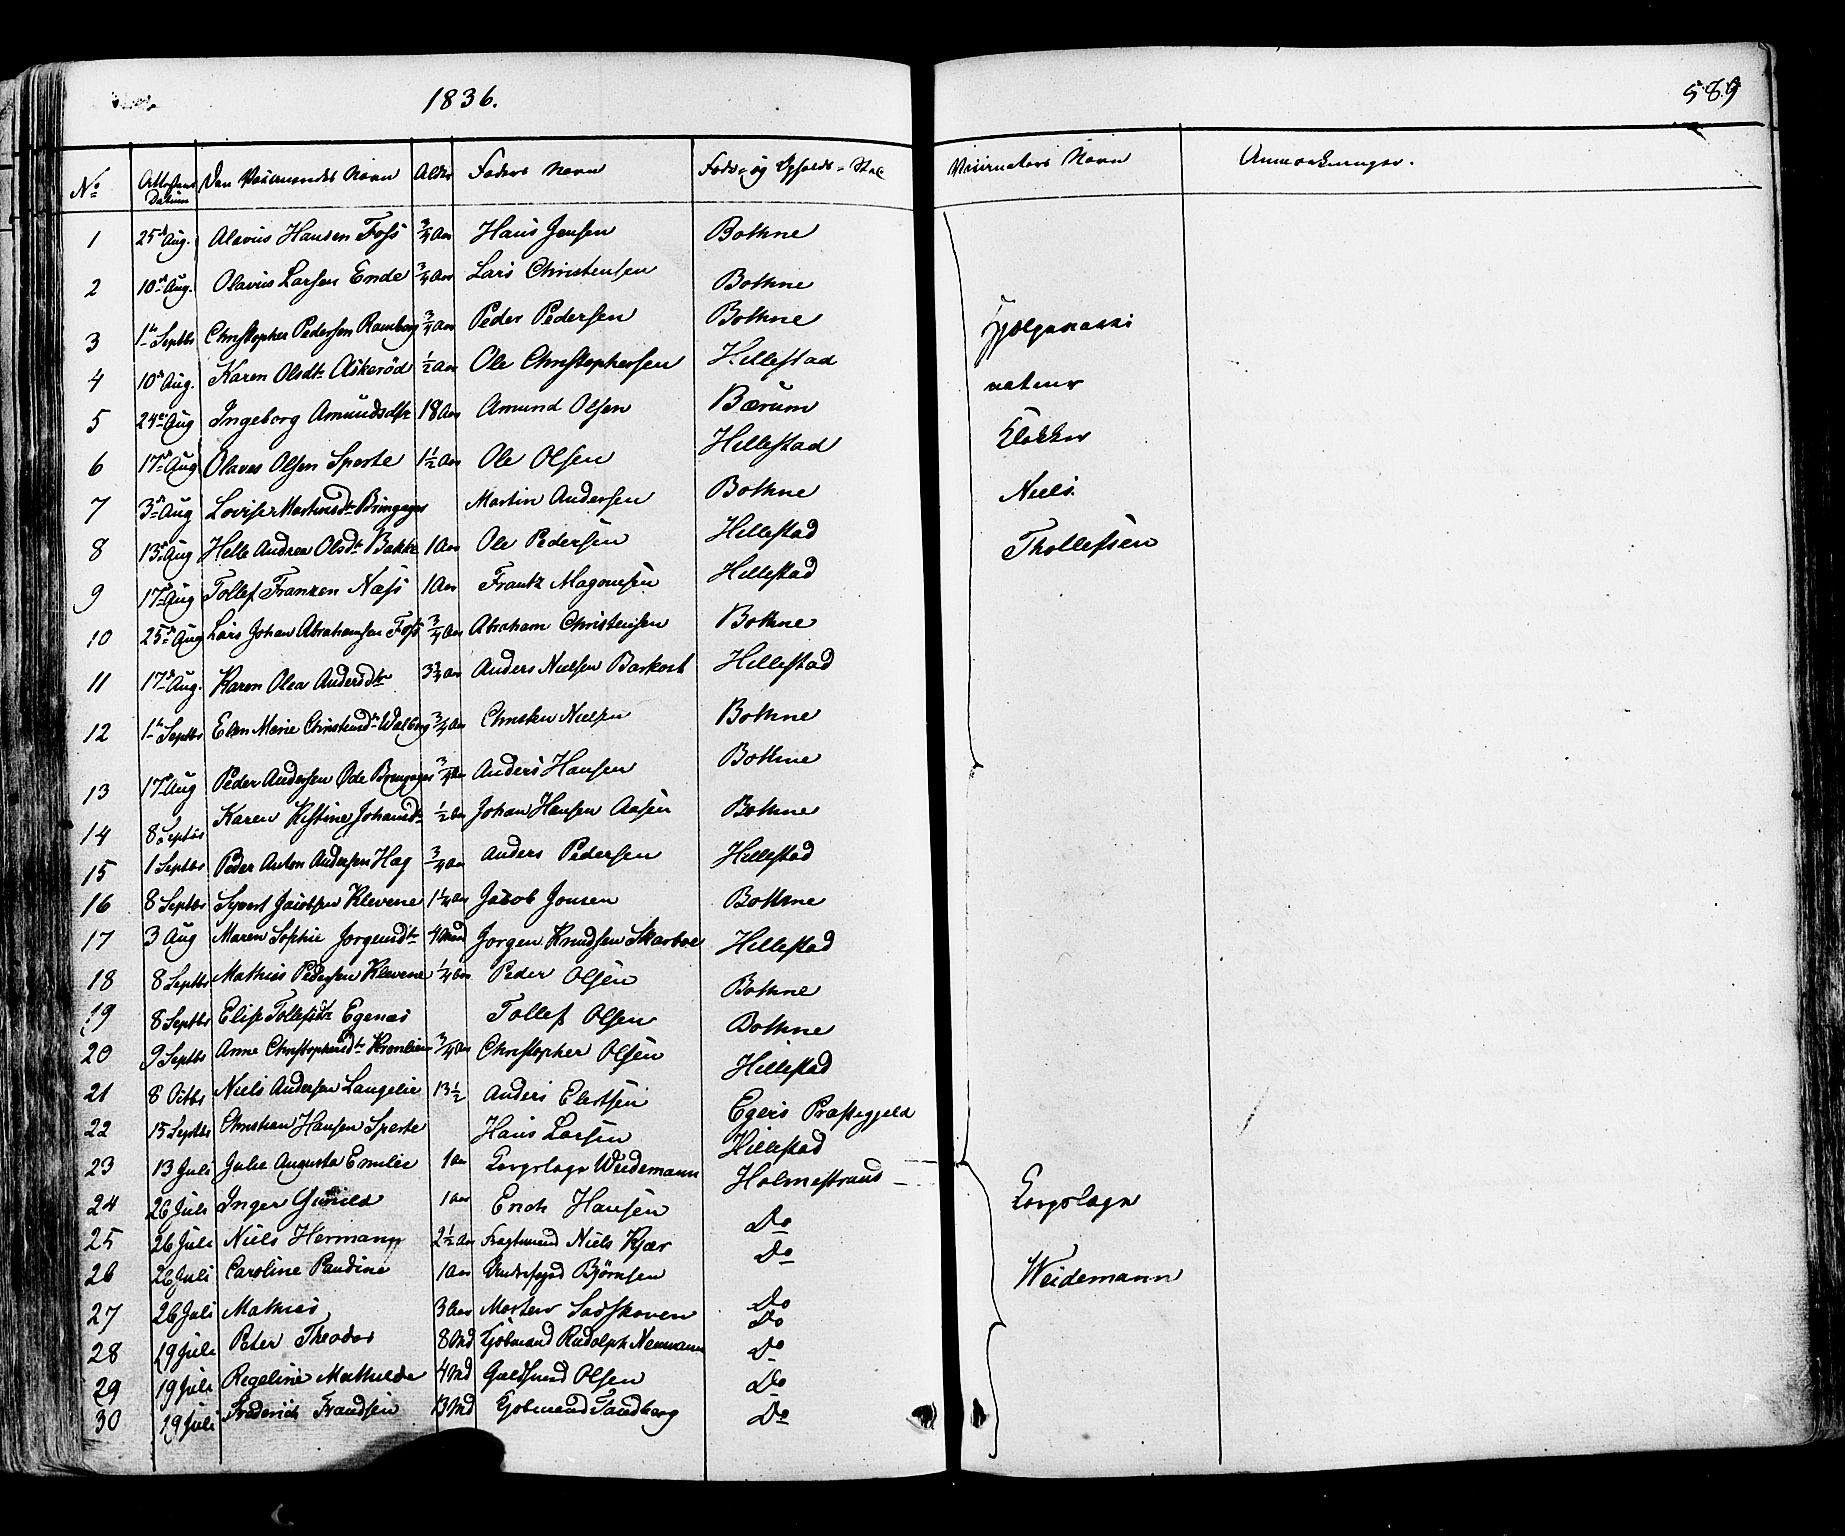 1836.
589
No Attestens Datum Den Vaccineredes Navn Alder Faders Navn Føde- og Opholds-Sted Vaccinateurs Navn Anmærkninger.
1 25de Aug. Olavus Hansen Foss 3/4 Aar Hans Jensen Bothne
2 10de Aug. Olavus Larsen Ende 3/4 Aar Lars Christensen Bothne
3 1te Septbr Christopher Pedersen Ramberg 3/4 Aar Peder Pedersen Bothne
4 10de Aug. Karen Olsdtr Askerød 1/2 Aar Ole Christophersen Hillestad
5 24de Aug Ingeborg Amundsdtr 18 Aar Amund Olsen Bærum
6 17de Aug Olaves Olsen Sperte 1 1/2 Aar Ole Olsen Hillestad
7 3de Aug Lovise Martinsdtr Bringager Martin Andersen Bothne
8 13de Aug Helle Andrea Olsdtr Bakke 1 Aar Ole Pedersen Hillestad
9 17de Aug Tollef Franzen Næss 1 Aar Frantz Magnussen Hillestad
10 25de Aug Lars Johan Abrahamsen Foss 3/4 Aar Abraham Christensen Bothne
11 17de Aug. Karen Olea Andersdtr 3 3/4 Aar Anders Nielsen Barkost Hillestad
12 1te Septbr Elen Marie Christensdtr Walberg 3/4 Aar Christen Nielsen Bothne
13 17de Aug Peder Andersen Øde Bringager 3/4 Aar Anders Hansen Bothne
14 8 Septbr Karen Kistine Johansdtr 1/2 Aar Johan Hansen Aasen Bothne
15 1 Septbr Peder Anton Andersen Hag 3/4 Aar Anders Pedersen Hillestad
16 8 Septbr Syvert Jacobsen Klevene 1 1/4 Aar Jacob Jonsen Bothne
17 3 Aug Maren Sophie Jorgensdtr 4 Maad Jorgen Knudsen Skarboe Hillestad
18 8 Septbr Mathias Pedersen Klevene 1/4 Aar Peder Olsen Bothne
19 8 Septbr Elise Tollefsdtr Egenæs Tollef Olsen Bothne
20 9 Septbr Anne Christophersdtr Kronlien 3/4 Aar Christopher Olsen Hillestad
21 8 Octbr Niels Andersen Langelie 13 1/2 Anders Elertsen Egers Præstegjeld
22 15 Septbr Christian Hansen Sperte Hans Larsen Hillestad
23 13 Juli Julie Augusta Emilie 1 Aar Corpslæge Weidemann Holmestrand
24 26 Juli Inger Gunild 1 Aar Erich Hansen Do
25 26 Juli Niels Hermann 2 1/2 Aar Fragtmand Niels Kjær Do
26 26 Juli Caroline Paudine 1 Aar Bjørnsen Do
27 26 Juli Mathias 3 Aar Morten Sadskoven Do
28 19 Juli Peter Theodor 8 Md Kjøbmand Rudolph Neumann Do
29 19 Juli Regeline Mathilde 4 Md Guldsmed Olsen Do
30 19 Juli Frederich Frandsen 13 Md Kjøbmand Sandberg Do
Hjelpevacci
nateur
Klokker
Niels
Thollefsen
Corpslæge
Weidemann